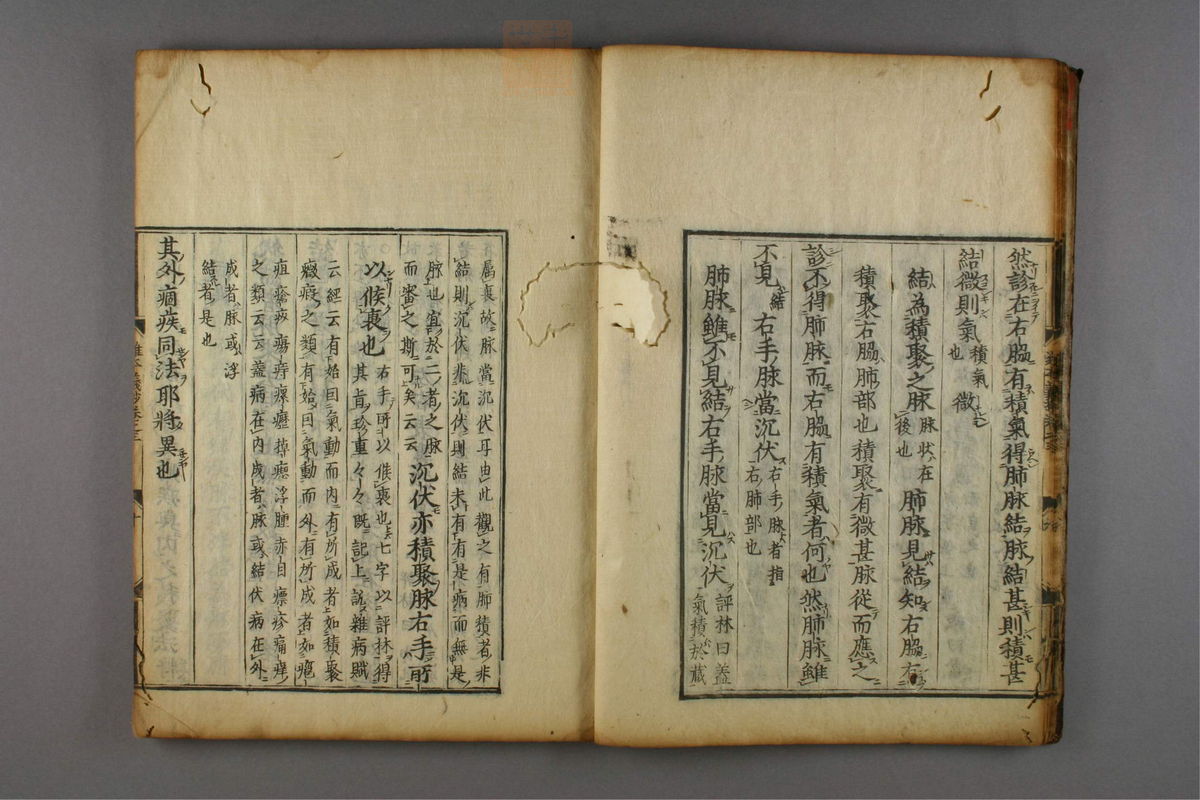 然診在右脇有積氣得肺脉結脉結甚則積甚
結微則氣微
積氣
也
結為積聚之脉
脉状在
後也
肺脉見結知右脇有
積聚右脇肺部也積聚有微甚脉從而應之
診不得肺脉而右脇有積氣者何也然肺脉雖
不見
結
右手脉當沉伏
右手脉者指
右肺部也
肺脉雖不見結右手脉當見沉伏
評林曰蓋
氣積於藏
属裏故脉當沉伏耳由此觀之有肺積者非
結則沉伏非沉伏則結未有有是病而無是
脉也宜於二者之脉
而審之斯可矣云云
沉伏亦積聚脉右手所
以候裏也
右手所以候裏也七字以評林得
其旨珍重々々既記上説雜病賊
云經云有始曰氣動而内有所成者如積聚
癥瘕之類有始曰氣動而外有所成者如瘡
疽
之類云云蓋病在内成者脉或結伏病在外
成者脉或浮
結者是也
其外痼疾同法耶將異也